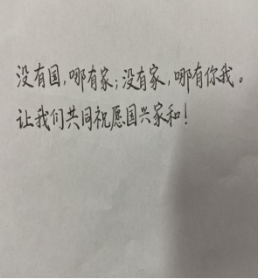 没有国,哪有家;没有家,哪有你我。
让我们共同祝愿国兴家和!